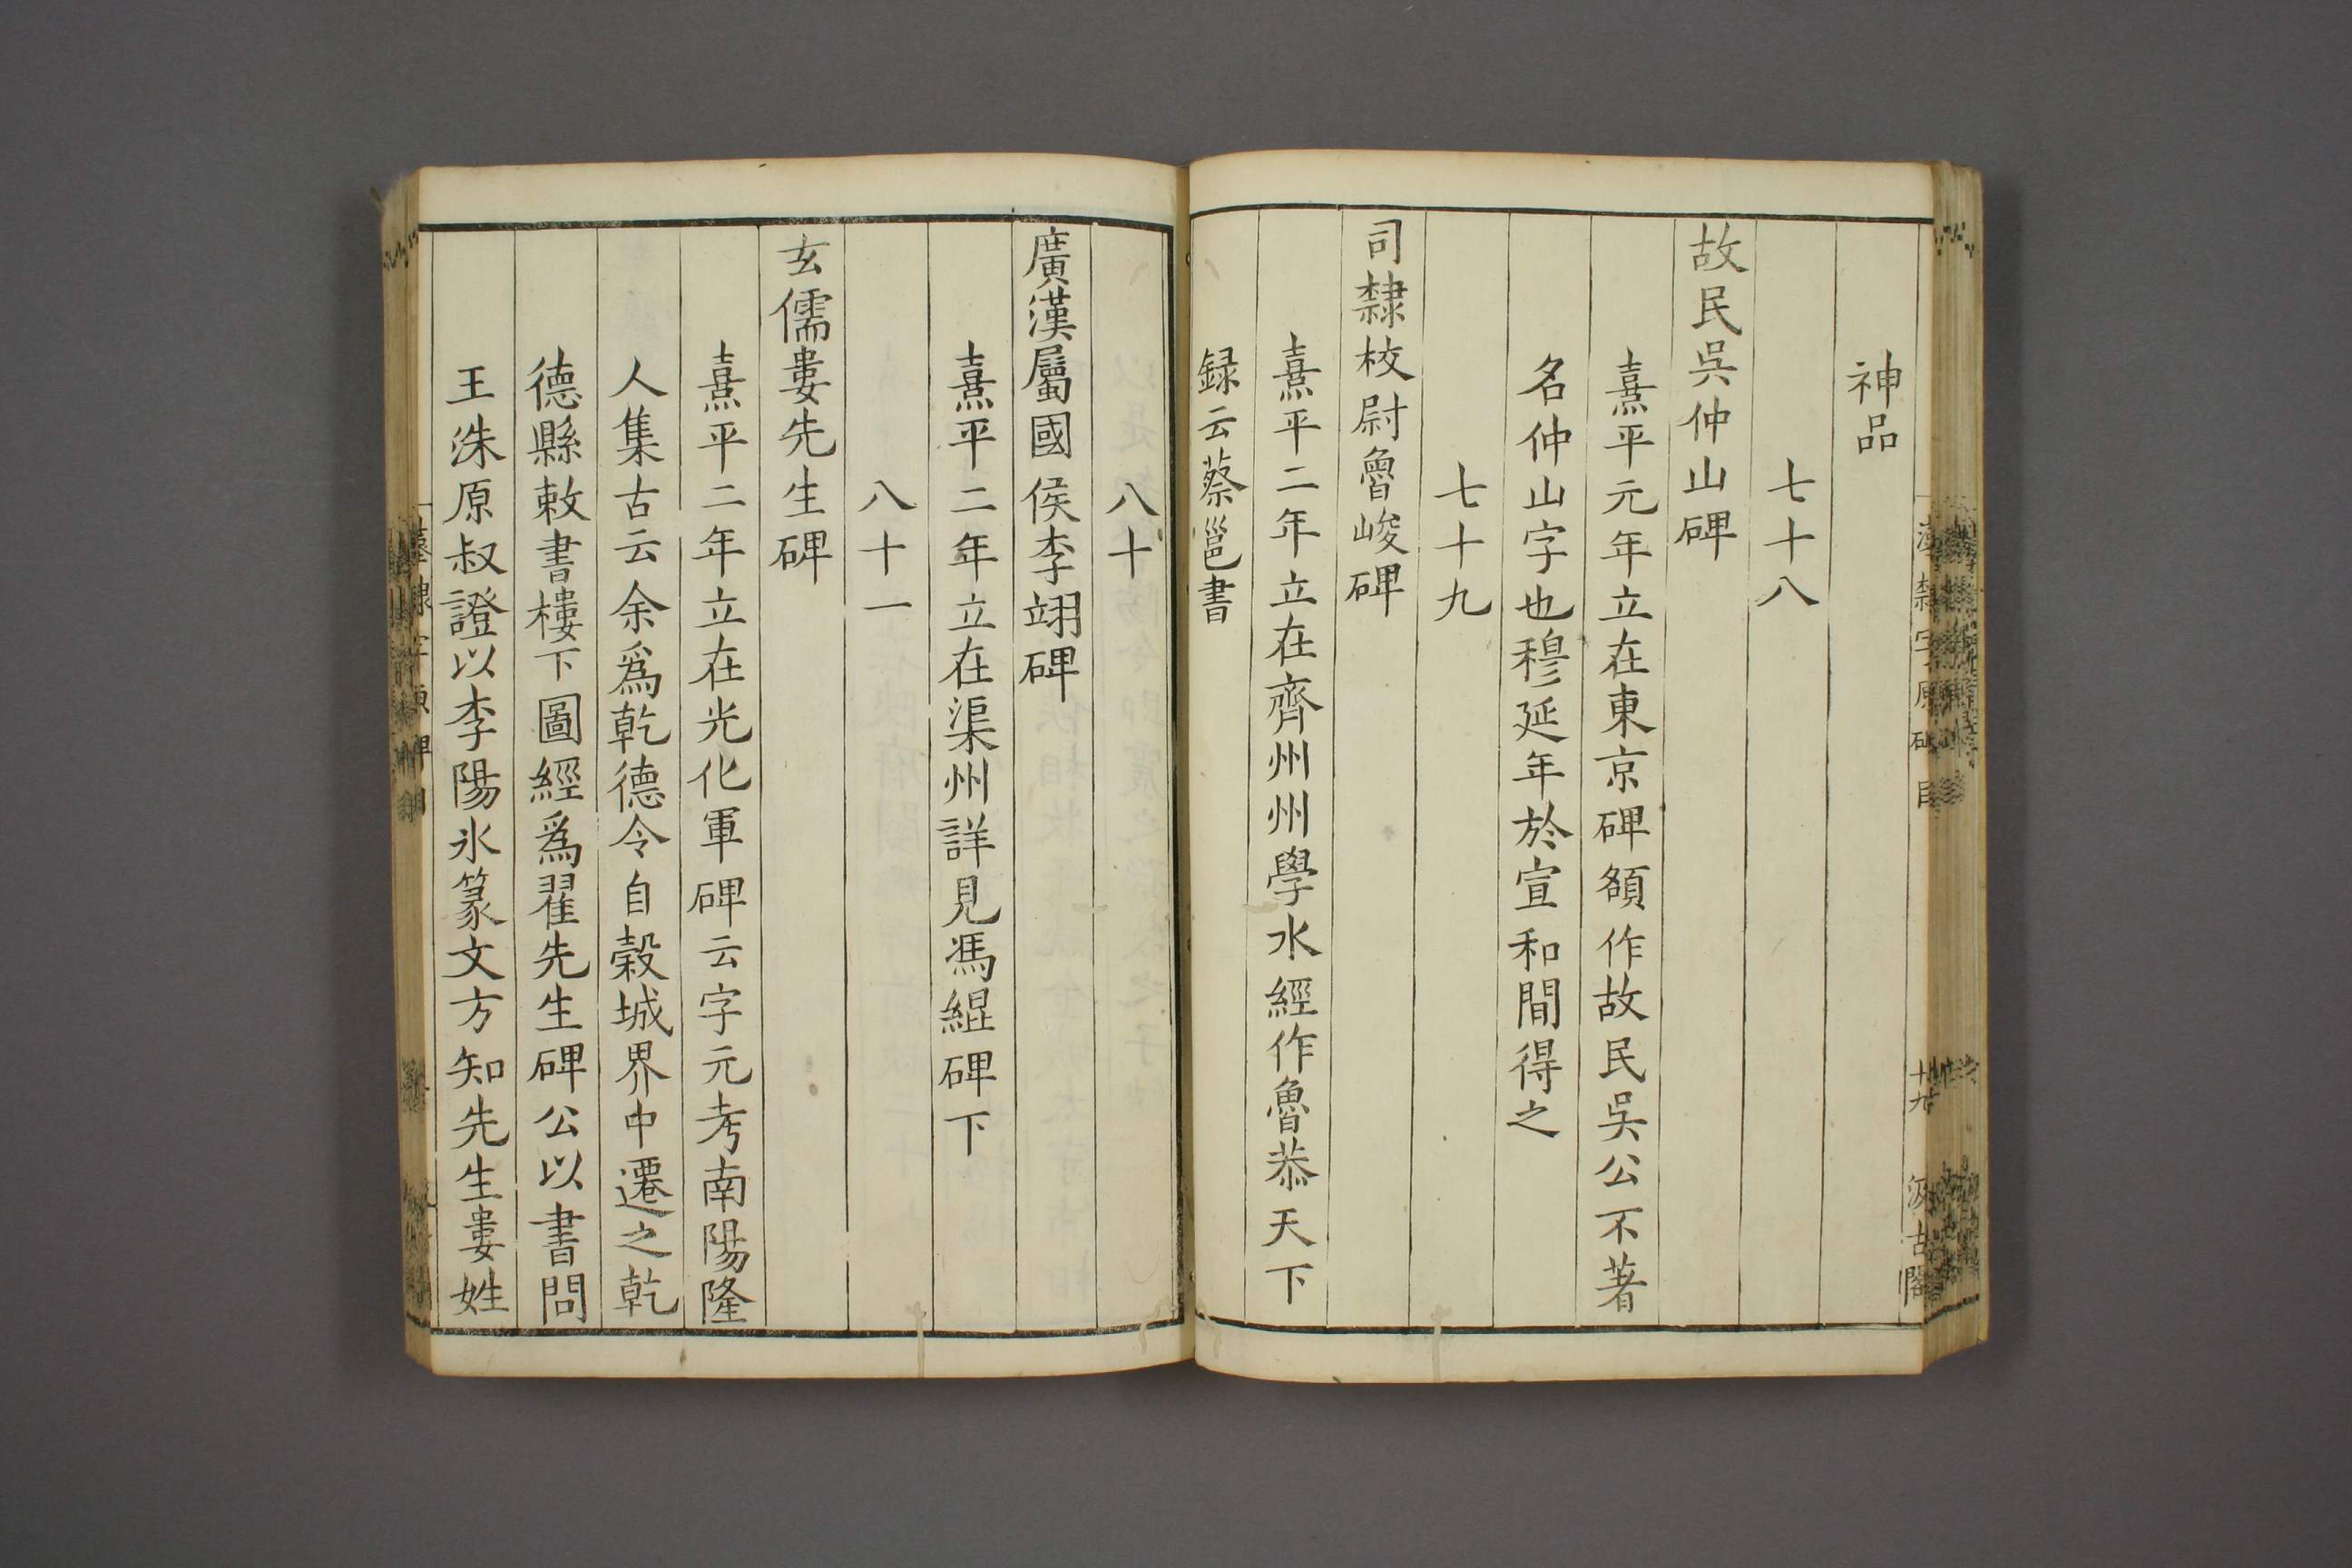 神品
七十八
故民吳仲山碑
熹平元年立在東京碑額作故民吳公不著
名仲山字也穆延年於宣和間得之
七十九
司隸校尉魯峻碑
熹平二年立在齊州州學水經作魯恭天下
録云蔡邕書
八十
廣漢屬國侯李翊碑
熹平二年立在渠州詳見馮緄碑下
八十一
玄儒婁先生碑
熹平二年立在光化軍碑云字元考南陽隆
人集古云余爲乾德令自穀城界中遷之乾
德縣敕書樓下圖經爲翟先生碑公以書問
王洙原叔證以李陽氷篆文方知先生婁姓